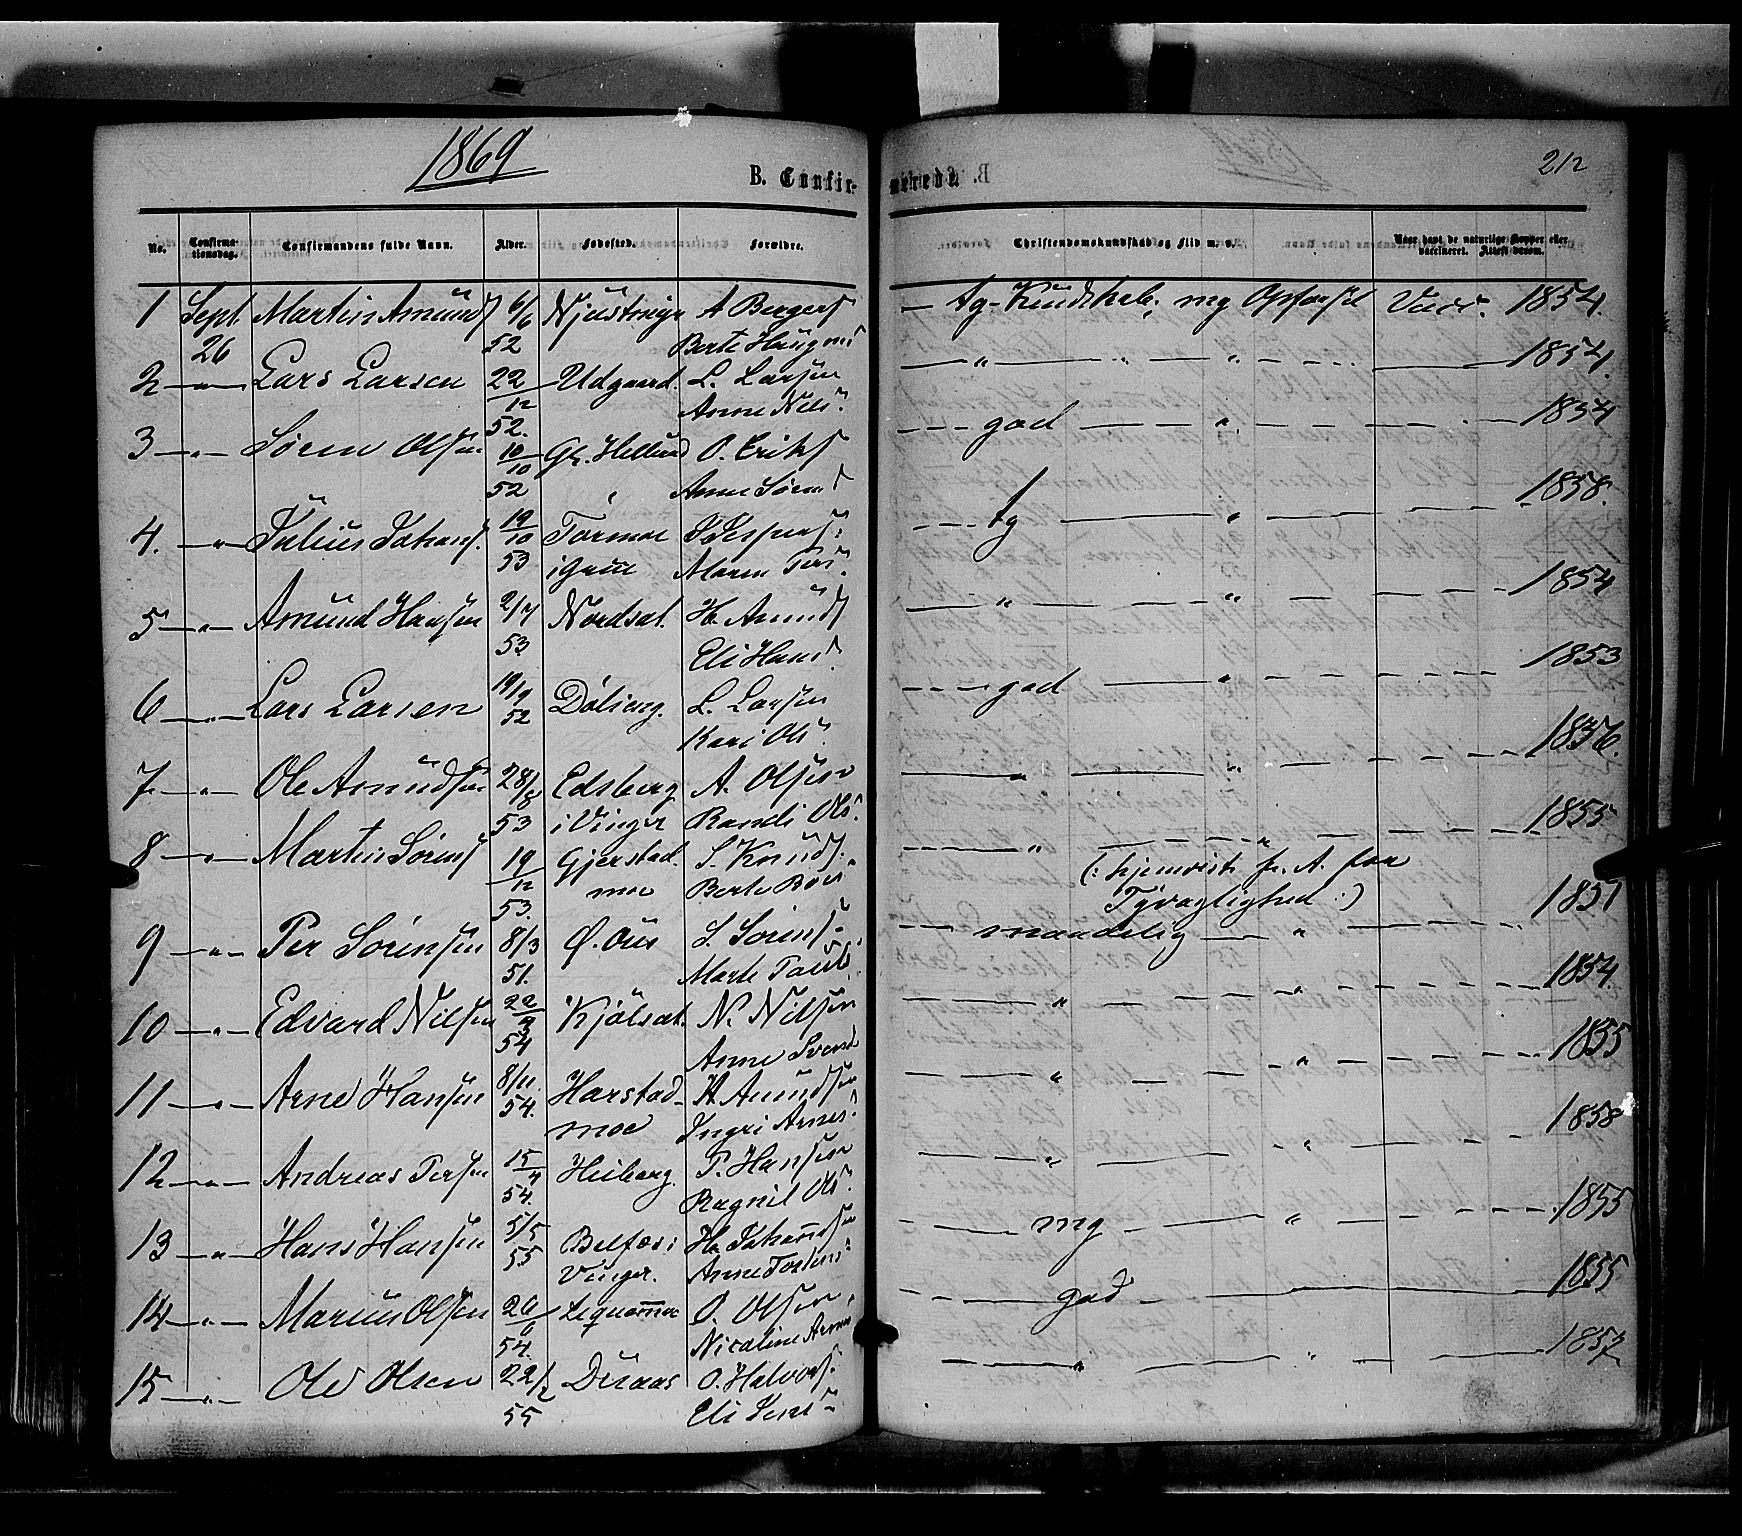 1869
212
B. Confir-
merede.
No.
Confirma-
tionsdag.
Confirmandens fulde Navn.
Alder.
Fødested.
Forældre.
Christendomskundskab og Flid m. v.
Naar havt de naturlige Kopper eller
vaccineret. Attest derom.
1 Sept. Martin Amunds 6/6 A Bergers – tg Kundskab; mg Opførsel Vacc. 1854.
26 52 Berte Haugens
2 –"– Lars Larsen 22 Udgaard. L. Larsen – " – " – 1854.
12 Anne Nils.
52.
3 –"– Søren Olsen 10 Gr. Hellund O. Eriks – god – " – 1854
10
52 Anne Sørens
4. –"– Julius Johans. 19 Tormoe – tg – " – 1858.
10
53 i Grue Maren Pers.
5 –"– Amund Hansen 2/7 Nordsat. H. Amunds – " – " – 1854
53 Eli Hans.
6 –"– Lars Larsen 19/9 L. Larsen – god – " – 1853
52 Kari Ols.
7 –"– Ole Amundsen 28/8 Edsberg A. Olsen – " – " – 1856.
53 i Vinger Randi Ols.
8 –"– Martin Sørens 19 Gjerstad S. Knuds. – " – " – 1855
12 moe Berte
53.
(: hjemvist fr. A. for
Tyvagtighed :)
9 –"– Per Sørensen 8/3 S. Sørens – maadelig – " – 1851
51. Marte Pauls.
10 –"– Edvard Nilsen 22 Kjølsat. N. Nilsen – " – " – 1854.
54 Anne Svends
11 –"– Arne Hansen 8/11. Harstad H Amundsen – " – " – 1855
54. moe Ingri Arnes.
12 –"– Andreas Persen 15 Heiberg. P. Hansen – " – " – 1858.
4
54. Ragnil Ols.
13 –"– Hans Hansen 5/5 Belfos i H. Johannesen – mg – " – 1855
55 Vinger. Anne Torstens.
14 –"– Marius Olsen 26 O. Olsen, – god – 1855
6
54. Nicoline Arnes
15 –"– Ole Olsen 22/2 O. Halvors. – " – " –
55 Eli Jens.